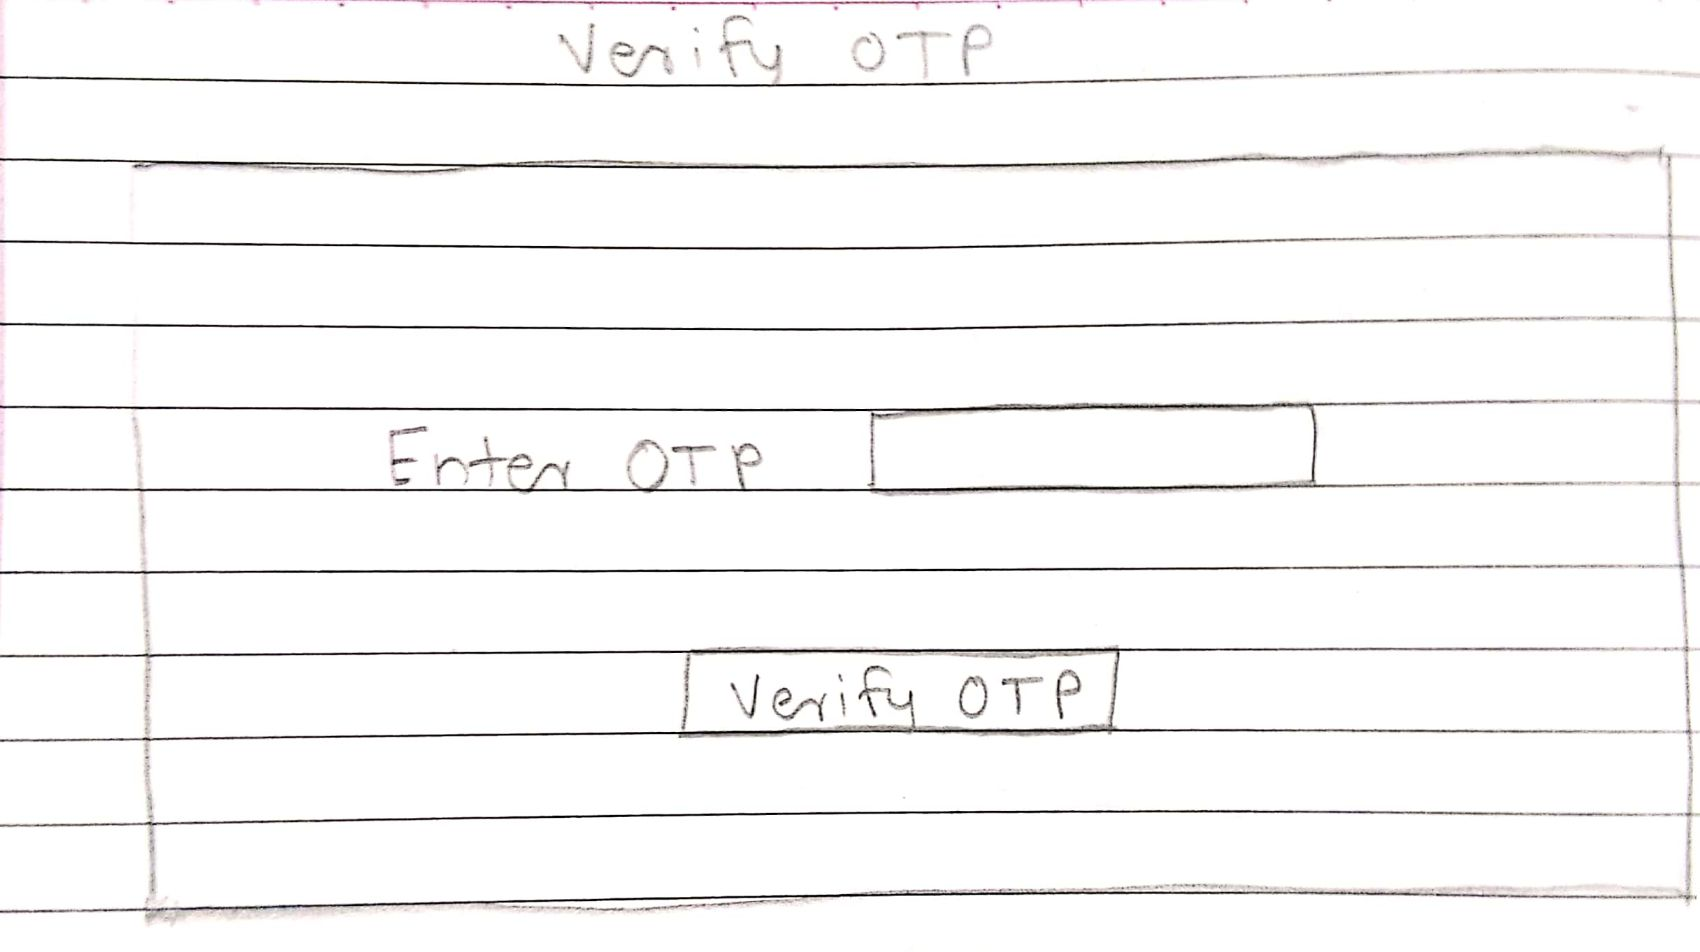 Verify OTP
Enter OTP
Verify OTP